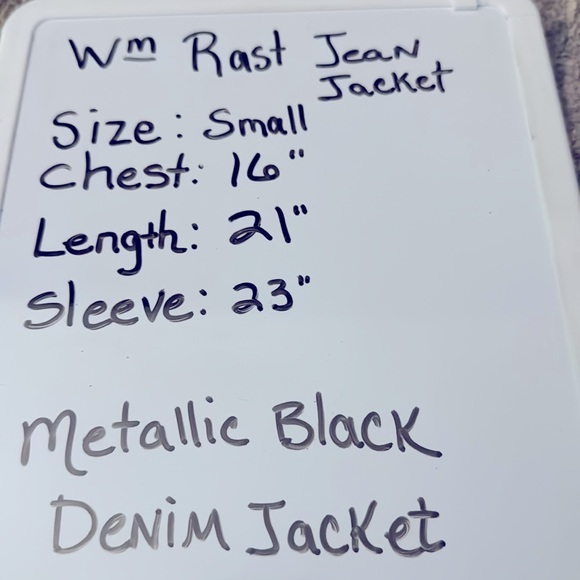 Wm Rast Jean
Jacket
Size: Small
Chest: 16"
Length: 21"
Sleeve: 23"
Metallic Black
Denim Jacket